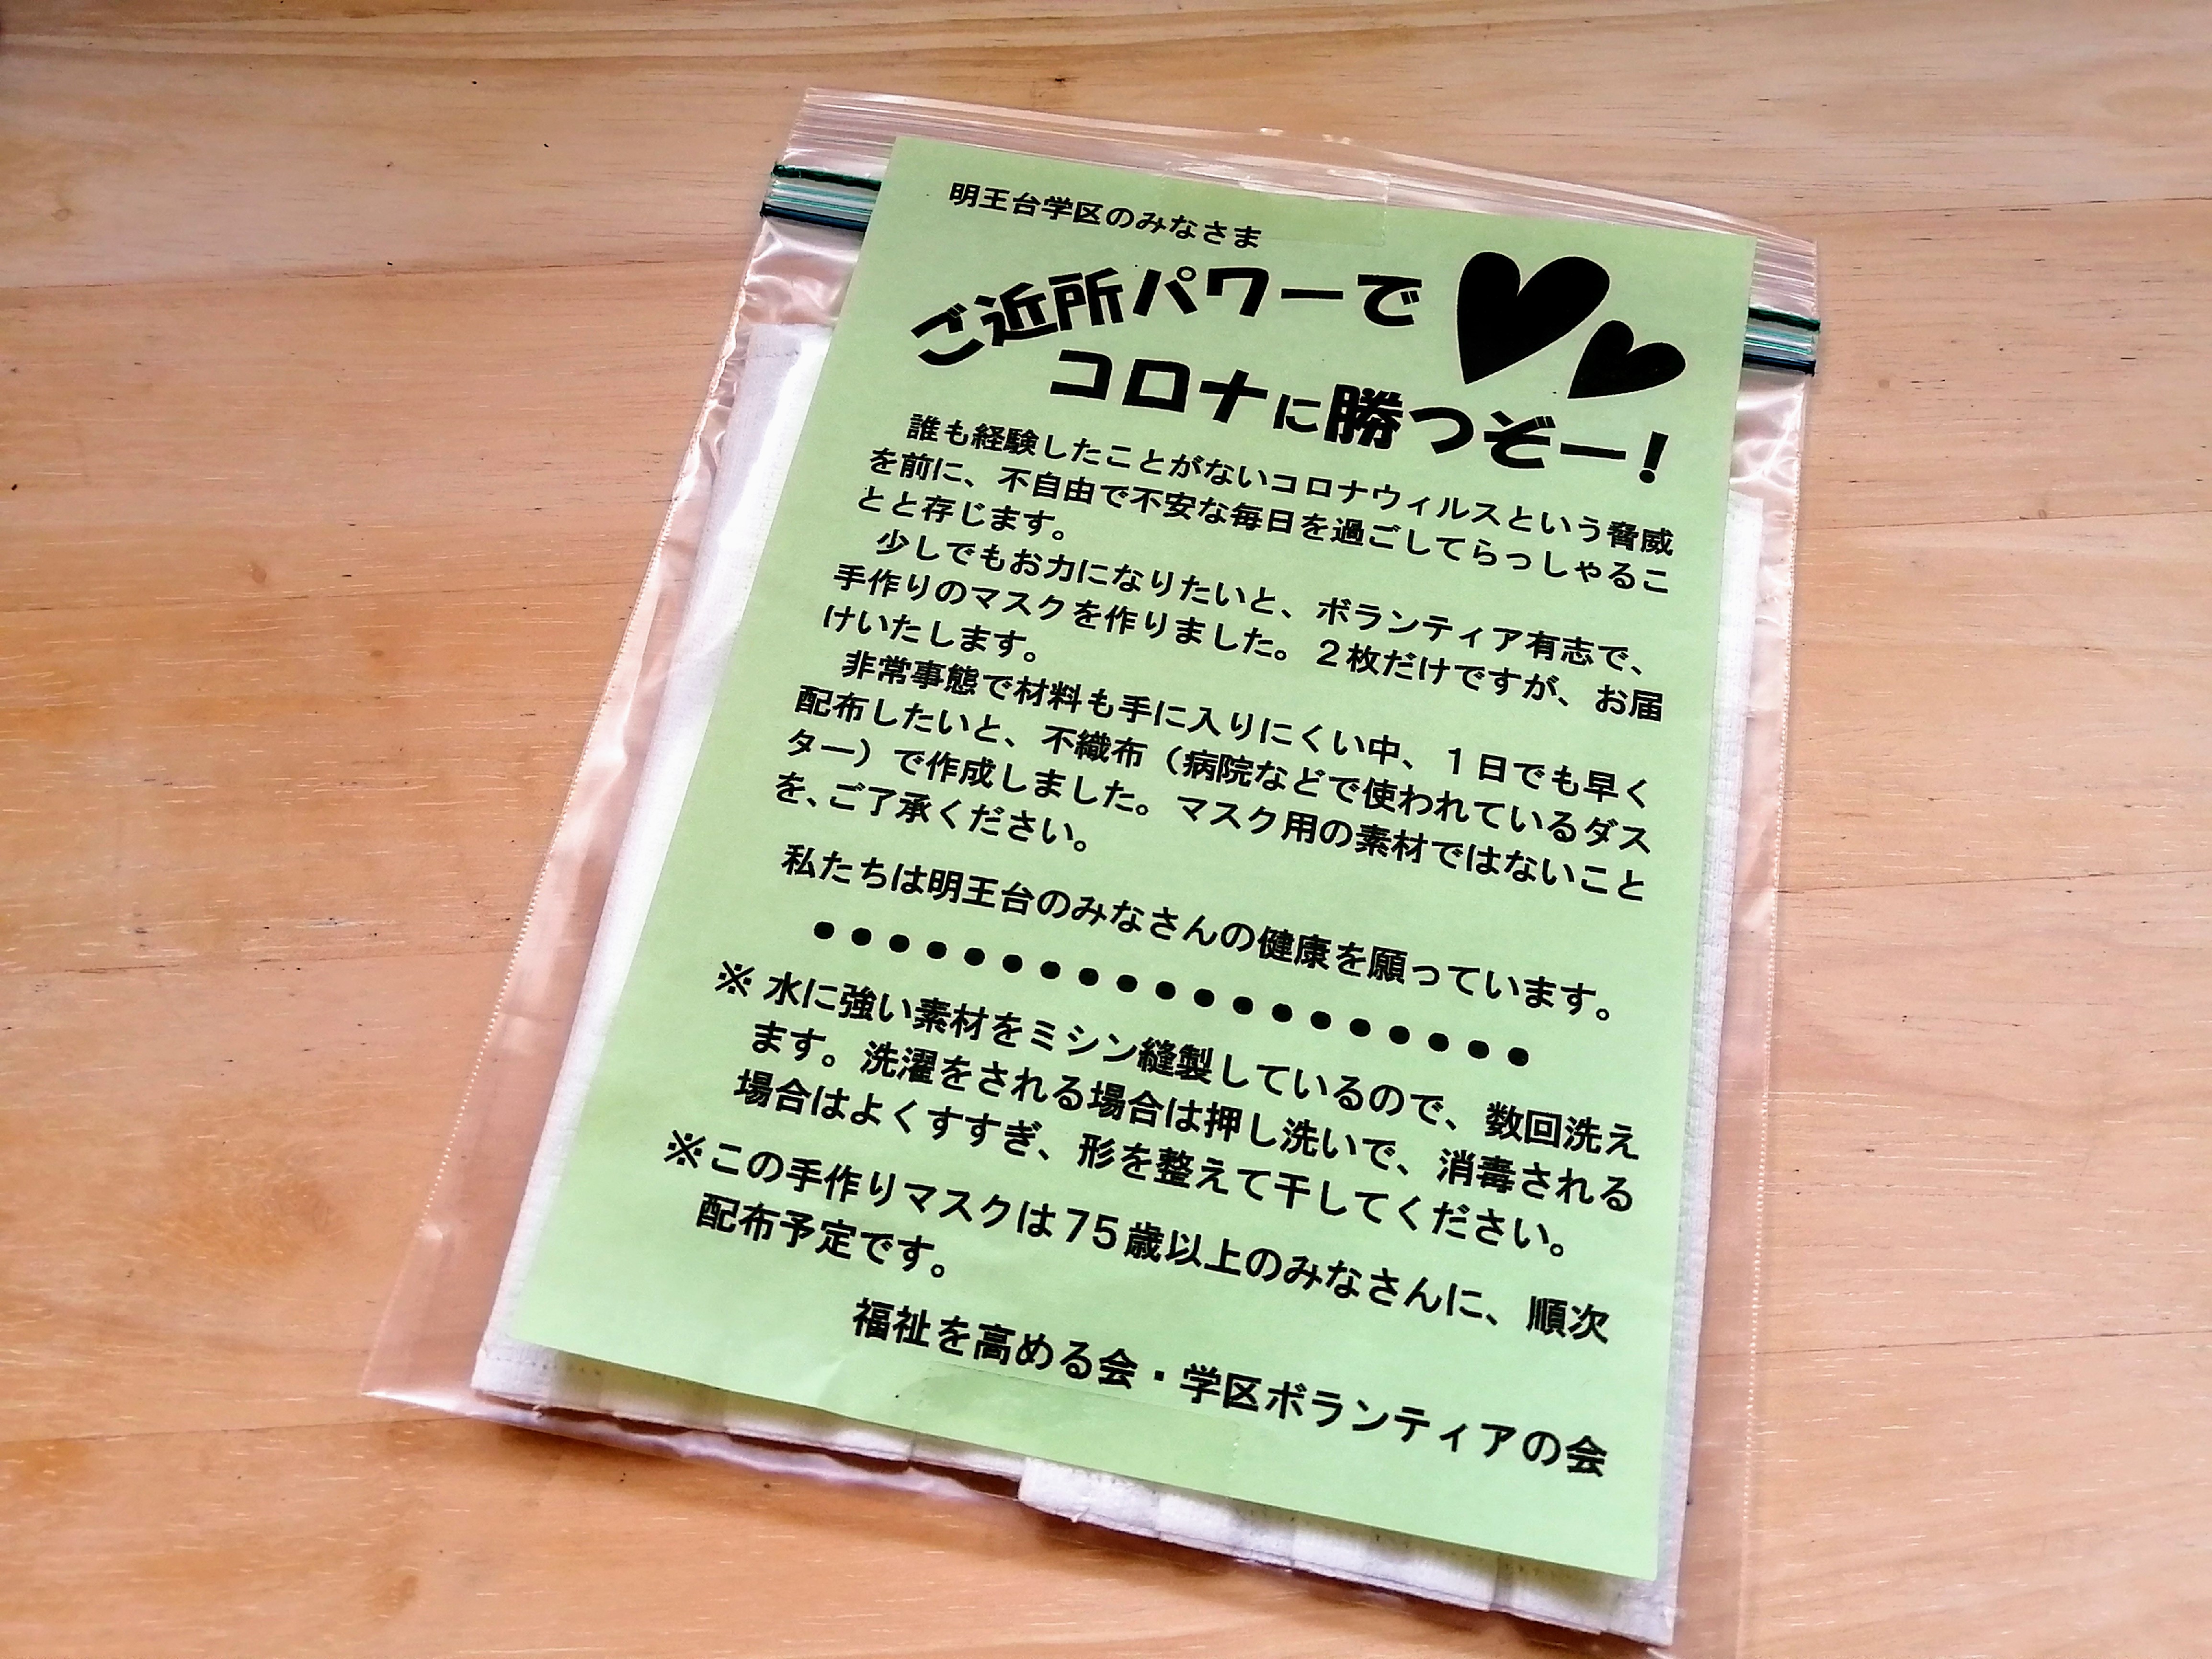 明王台学区のみなさま
ご近所パワーで
コロナに勝つぞー！
誰も経験したことがないコロナウィルスという脅威
を前に、不自由で不安な毎日を過ごしてらっしゃるこ
とと存じます。
少しでもお力になりたいと、ボランティア有志で、
手作りのマスクを作りました。２枚だけですが、お届
けいたします。
非常事態で材料も手に入りにくい中、１日でも早く
配布したいと、不織布（病院などで使われているダス
ター）で作成しました。マスク用の素材ではないこと
を、ご了承ください。
私たちは明王台のみなさんの健康を願っています。
●●●●●●●●●●●●●●●●●●●
※ 水に強い素材をミシン縫製しているので、数回洗え
ます。洗濯をされる場合は押し洗いで、消毒される
場合はよくすすぎ、形を整えて干してください。
※この手作りマスクは75歳以上のみなさんに、順次
配布予定です。
福祉を高める会・学区ボランティアの会